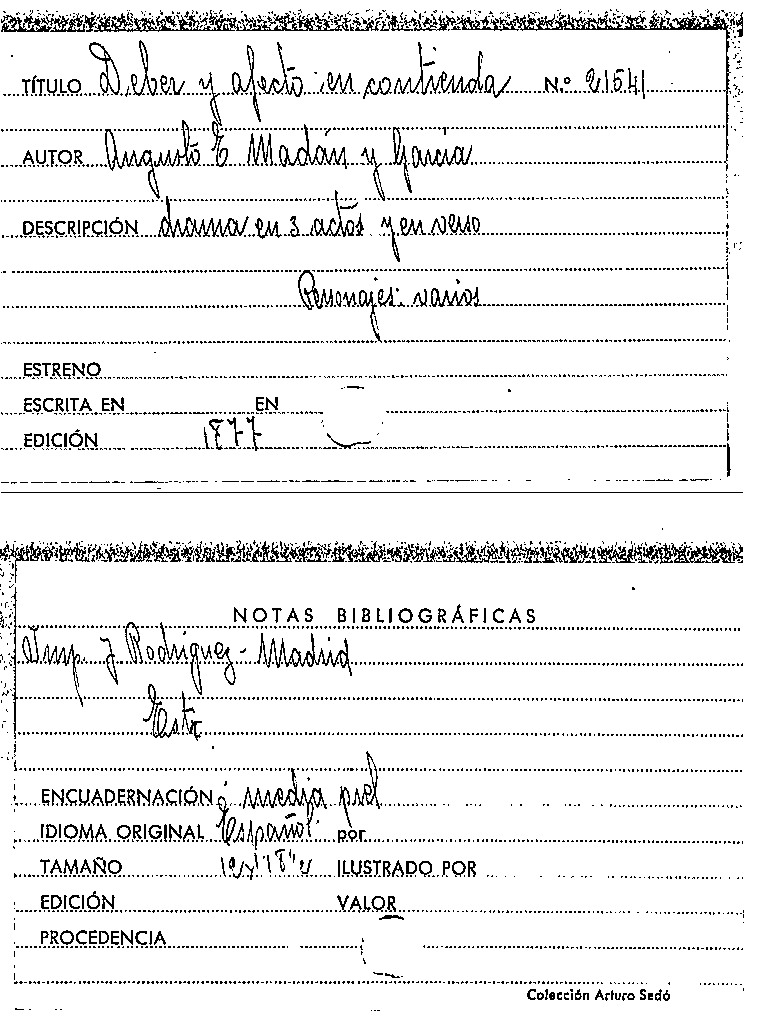 TÍTULO Deber y afecto en contienda N.º 21541
AUTOR Augusto E Madán y García
DESCRIPCIÓN drama en 3 actos y en verso
Personajes: varios
ESTRENO
ESCRITA EN EN
EDICIÓN 1877
NOTAS BIBLIOGRÁFICAS
Imp. J Rodriguez - Madrid
ENCUADERNACIÓN media piel
IDIOMA ORIGINAL Español. por
TAMAÑO ILUSTRADO POR
EDICIÓN VALOR
PROCEDENCIA
Colección Arturo Sedó